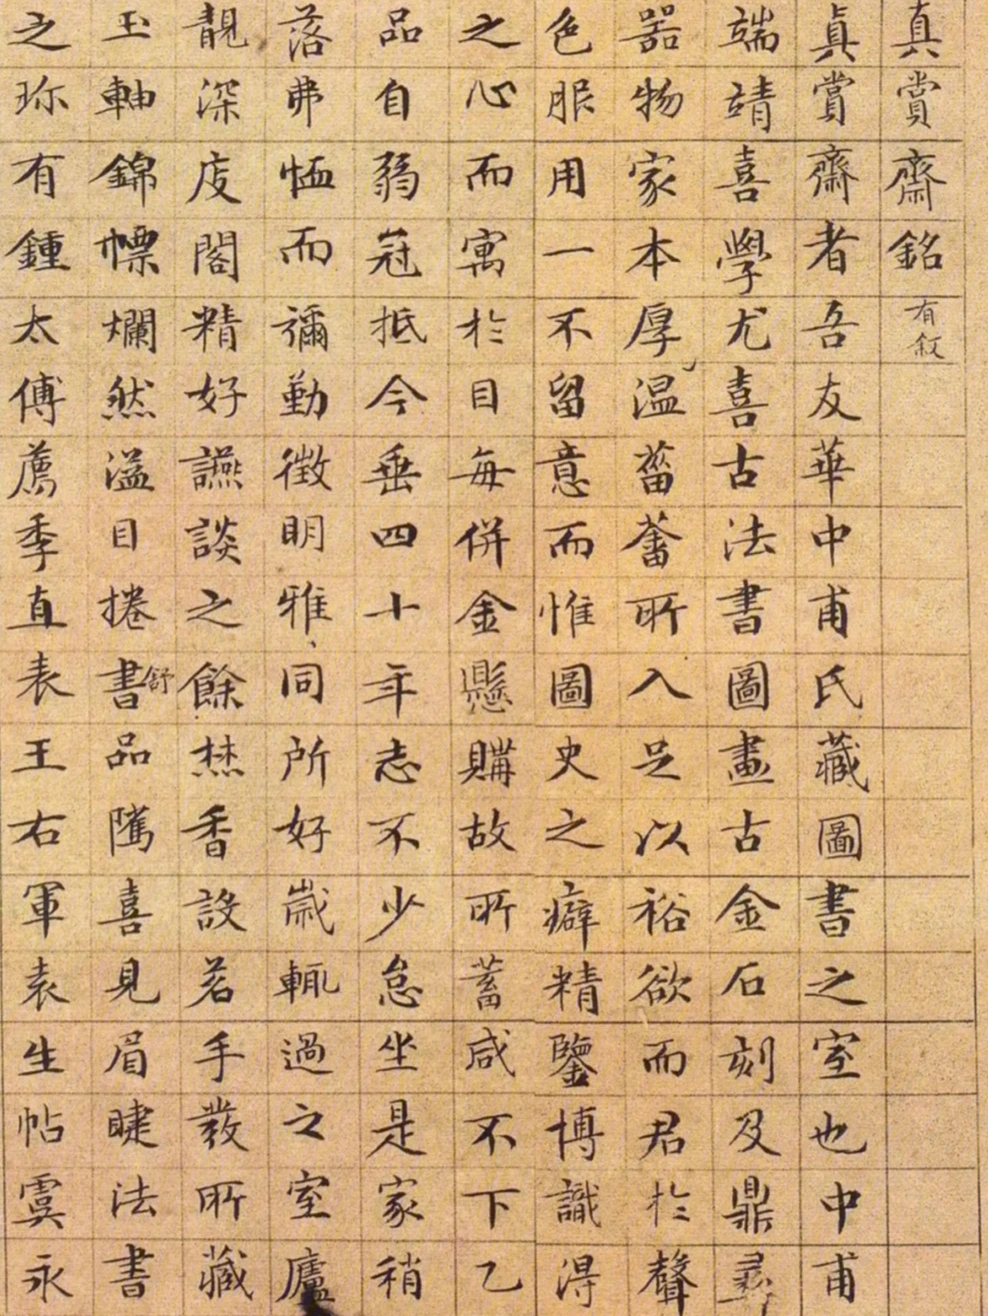 真賞齋銘有叙
真賞齋者吾友華中甫氏藏圖書之室也中甫
端靖喜學尤喜古法書圖畫古金石刻及鼎彝
器物家本厚温菑畬所入足以裕欲而君於聲
色服用一不留意而惟圖史之癖精鑒博識得
之心而寓於目每併金懸購故所蓄咸不下乙
品自弱冠抵今垂四十年志不少怠坐是家稍
落弗恤而彌勤徵明雅同所好歲輒過之室廬
靚深庋閣精好讌談之餘焚香設茗手發所藏
玉軸錦幖爛然溢目捲舒書品騭喜見眉睫法書
之珎有鍾太傅薦季直表王右軍袁生帖虞永